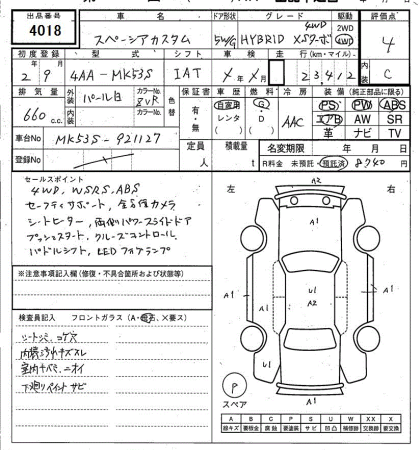 出品番号 車名 ドア形状 グレード 駆動 評価点
4018 スペーシアカスタム 5W/G HYBRID XSターボ 4WD 2WD 4WD 4
初度登録 型式 シフト 車検 走行(km・マイル) 内装
2年9月 4AA-MK53S IAT X年X月 23,412 C
排気量 外装 カラーNo. 色替 車歴 燃料 冷房 装備(純正部品に限る)
660cc パール白 ZVR 有・無 自家用 レンタ G・D AAC PS PW ABS
内装 カラーNo. エアB AW SR
革 ナビ TV
車台No MK53S-921127 定員 人 積載量 名変期限 年 月 日
登録No. R料金 未預託・預託済 8740
セールスポイント
4WD、WSRS、ABS
セーフティサポート、全方位カメラ
シートヒーター、両側パワースライドドア
プッシュスタート、クルーズコントロール
パドルシフト、LEDフォグランプ
※注意事項記入欄(修復・不具合箇所および状態等)
検査員記入 フロントガラス(A・飛石・X要ス)
シートシミ、コゲ穴
内装汚れキズスレ
室内ナベミ、ニオイ
下廻りペイントサビ
左 右
A2
A1
A1 A1 U1 A2 A1 A1
U1 U1
A1
P
スペア
A B C P S U W X XX
線キズ 要板金 腐蝕 要塗装 サビ 凹凸 補修跡 交換跡 要交換